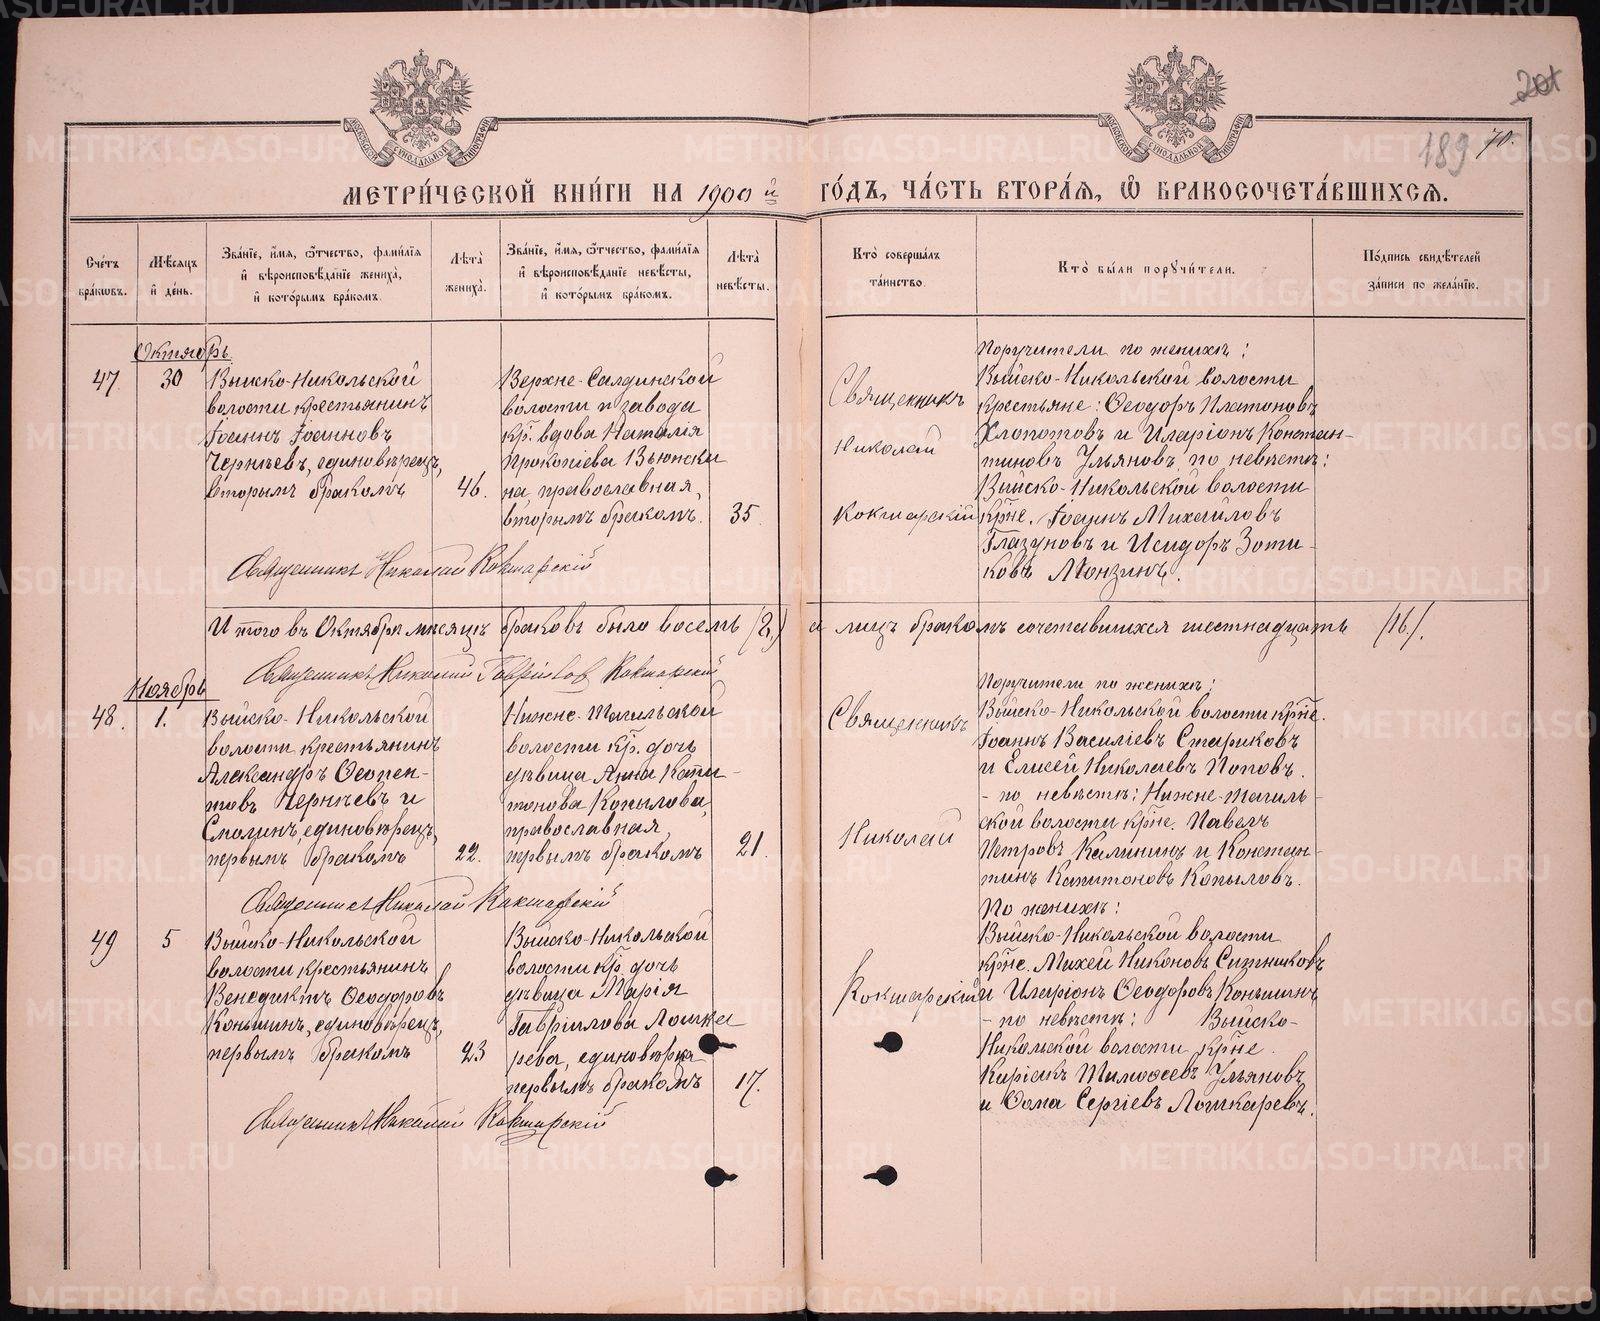 201
189 70.
МЕТРИ́ЧЕСКОЙ КНИ́ГИ НА 1900 й ГО́ДЪ, ЧА́СТЬ ВТОРА́Я, Ѿ БРАКОСОЧЕТА́ВШИХСЯ.
Сче́тъ бра́ковъ.
Мѣ́сяцъ и҆ де́нь.
Зва́нїе, и҆́мя, ѻ҆́тчество, фами́лїя и҆ вѣроисповѣ́данїе жениха̀, и҆ кото́рымъ бра́комъ.
Лѣ́та жениха̀.
Зва́нїе, и҆́мя, ѻ҆́тчество, фами́лїя и҆ вѣроисповѣ́данїе невѣ́сты, и҆ кото́рымъ бра́комъ.
Лѣ́та невѣ́сты.
Кто̀ соверша́лъ та́инство.
Кто̀ бы́ли поручи́тели.
По́дпись свидѣ́телей за́писи по жела́нїю.
Октябрь.
47.
30
Выйско-Никольской
волости крестьянинъ
Іоаннъ Іоанновъ
Чернѣевъ, единовѣрецъ,
вторымъ бракомъ
46.
Верхне-Салдинской
волости и завода
кр. вдова Наталія
Прокопіева Вьюнски
на, православная,
вторымъ бракомъ.
35.
Священникъ
Николай
Кокшарскій
Поручители по женихѣ:
Выйско-Никольской волости
крестьяне: Ѳеодоръ Платоновъ
Хлопотовъ и Иларіонъ Констан-
тиновъ Ульяновъ, по невѣстѣ:
Выйско-Никольской волости
кр̃не. Іоаннъ Михаиловъ
Глазуновъ и Исидоръ Зоти-
ковъ Монзинъ.
Священникъ Николай Кокшарскій
И того въ Октябрѣ мѣсяцѣ браковъ было восемь (8,) а лицъ бракомъ сочетавшихся шестнадцать (16).
Священникъ Николай Гавріилов Кокшарскій
Ноябрь
48.
1.
Выйско-Никольской
волости крестьянинъ
Александръ Ѳеопен-
товъ Чернѣевъ и
Смолинъ, единовѣрецъ,
первымъ бракомъ
22.
Нижне-Тагильской
волости кр. дочь
дѣвица Анна Капи-
тонова Копылова,
православная,
первымъ бракомъ
21.
Священникъ
Николай
Кокшарскій
Поручители по женихѣ:
Выйско-Никольской волости кр̃не.
Іоаннъ Василіевъ Стариковъ
и Елисей Николаевъ Поповъ.
- по невѣстѣ: Нижне-Тагиль-
ской волости кр̃не. Павелъ
Петровъ Калининъ и Констан-
тинъ Капитоновъ Копыловъ.
Священникъ Николай Кокшарскій
49
5
Выйско-Никольской
волости крестьянинъ
Венедиктъ Ѳеодоровъ
Коньшинъ, единовѣрецъ,
первымъ бракомъ
23
Выйско-Никольской
волости кр. дочь
дѣвица Марія
Гавріилова Лошка
рева, единовѣрка
первымъ бракомъ
17.
По женихѣ:
Выйско-Никольской волости
кр̃не. Михей Никоновъ Ситниковъ
и Иларіонъ Ѳеодоровъ Коньшинъ
- по невѣстѣ: Выйско-
Никольской волости кр̃не.
Киріакъ Тимоѳеевъ Ульяновъ
и Ѳома Сергіевъ Лошкаревъ.
Священникъ Николай Кокшарскій
METRIKI.GASO-URAL.RU